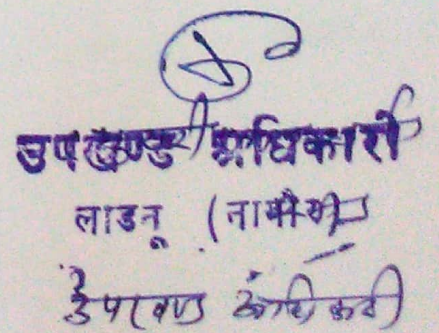 उपखण्ड अधिकारी
लाडनू (नागौर)
उपखण्ड अधिकारी